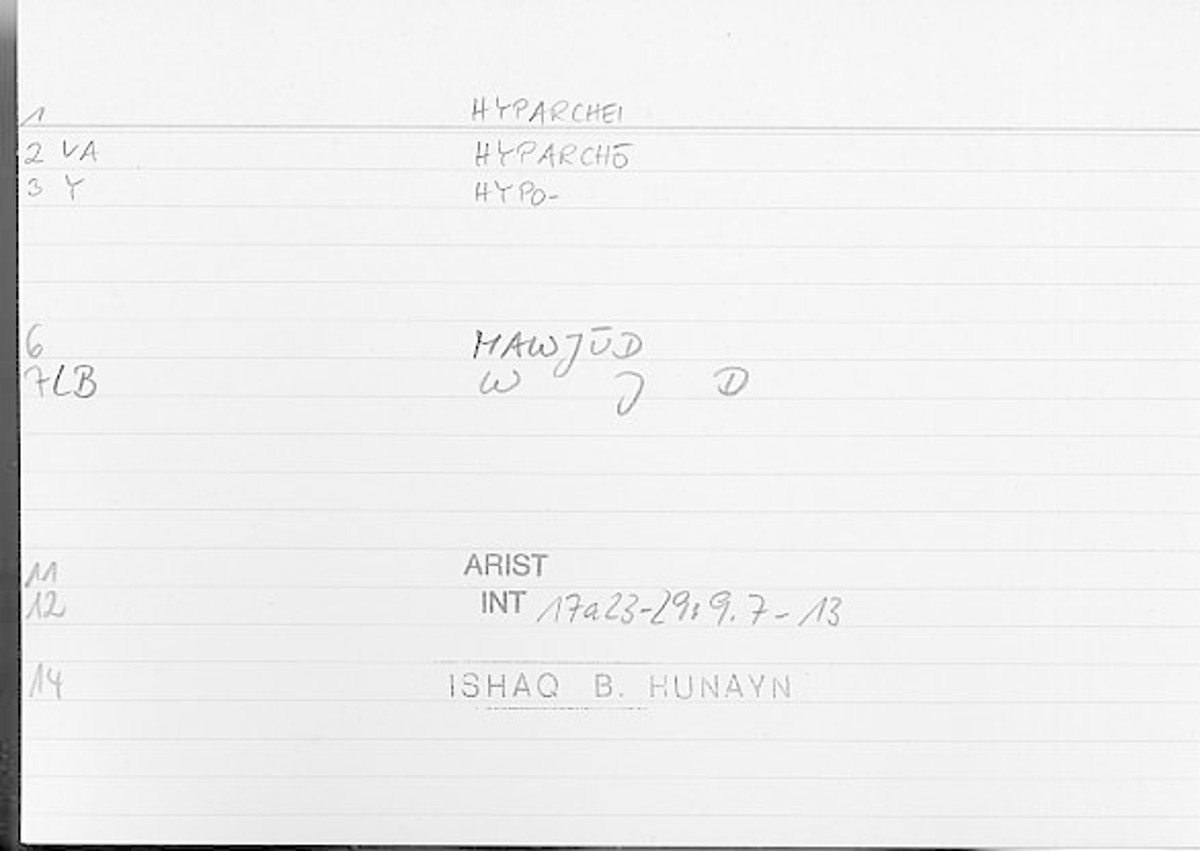 1 HYPARCHEI
2 VA HYPARCHŌ
3 Y HYPO-
6 MAWJŪD
7LB W J D
11 ARIST
12 INT 17a23-29: 9. 7 - 13
14 ISHAQ B. HUNAYN